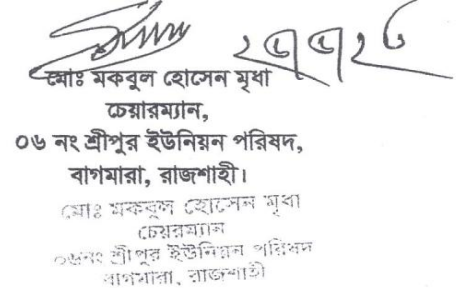 মোঃ মকবুল হোসেন মৃধা
চেয়ারম্যান,
০৬ নং শ্রীপুর ইউনিয়ন পরিষদ,
বাগমারা, রাজশাহী।
মোঃ মকবুল হোসেন মৃধা
চেয়রম্যান
০৬নং শ্রীপুর ইউনিয়ন পরিষদ
বাগমারা, রাজশাহী